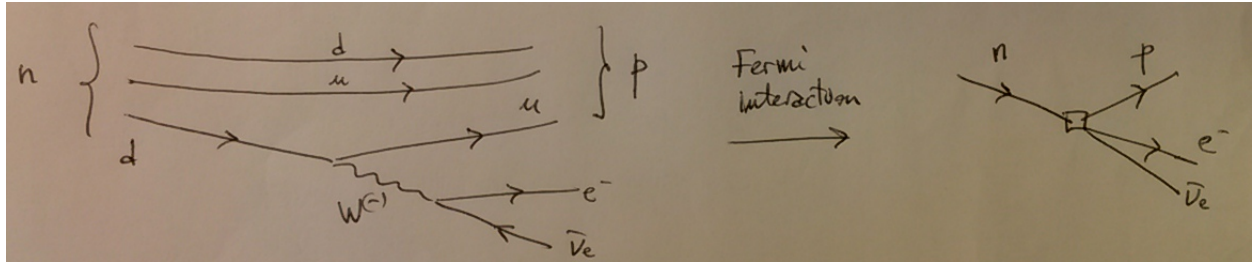 n { d } p
u
d
u
W(-)
e-
ν̄e
Fermi
interaction
n
p
e-
ν̄e